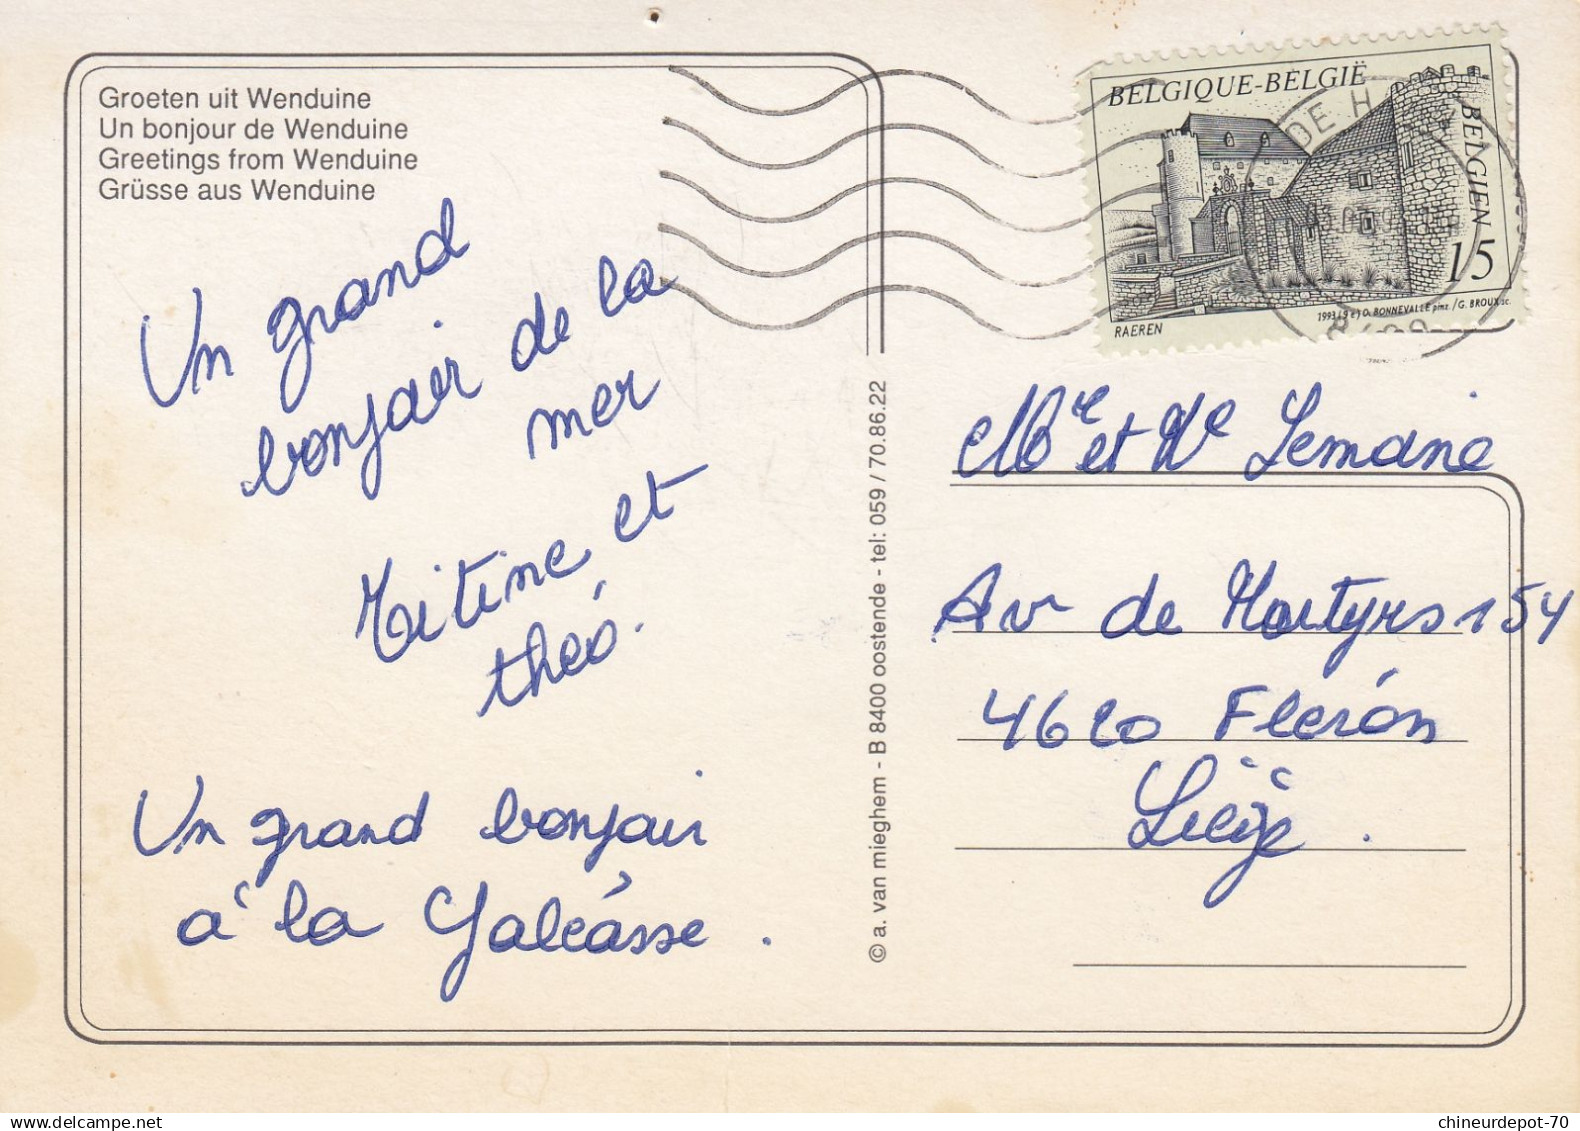 Groeten uit Wenduine
Un bonjour de Wenduine
Greetings from Wenduine
Grüsse aus Wenduine
Un grand
bonjair de la
mer
Titine et
théo.
Un grand bonjair
à la
© a. van mieghem - B 8400 oostende - tel: 059 / 70.86.22
BELGIQUE-BELGIË
BELGIEN
15
RAEREN
1993 (9 e) O. BONNEVALLE pinx. / G. BROUX sc.
DE H
Mr et Me Lemaine
Av de Martyrs 154
4620 Fleron
Liège.
chineurdepot-70